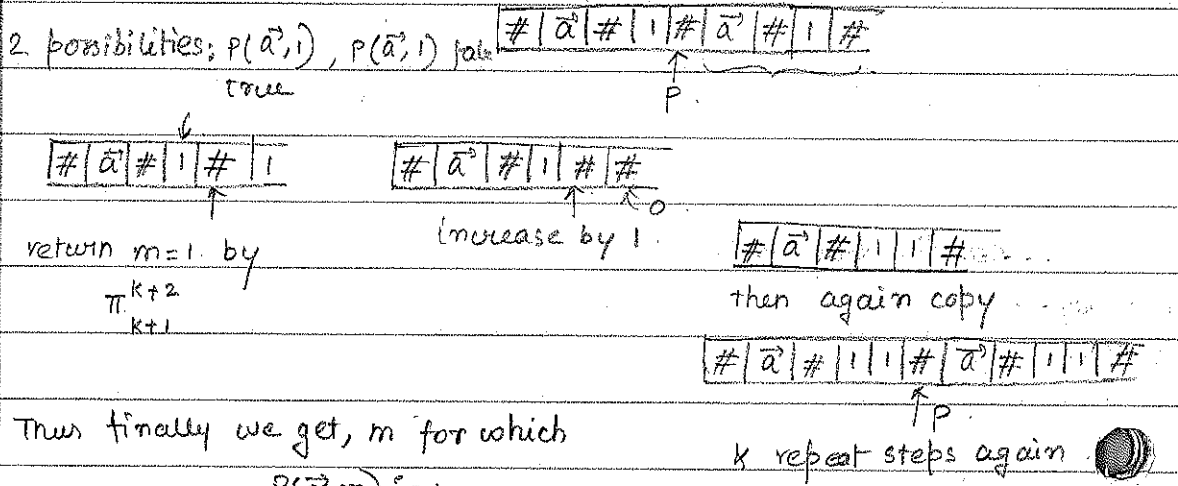 2 possibilities: P(a⃗,1), P(a⃗,1) false # | a⃗ | # | 1 | # | a⃗ | # | 1 | #
true
P.
# | a⃗ | # | 1 | # | 1
# | a⃗ | # | 1 | # | #
0
return m=1. by
increase by 1.
# | a⃗ | # | 1 | 1 | #
π^{k+2}_{k+1}
then again copy
# | a⃗ | # | 1 | 1 | # | a⃗ | # | 1 | 1 | #
P
Thus finally we get, m for which
& repeat steps again